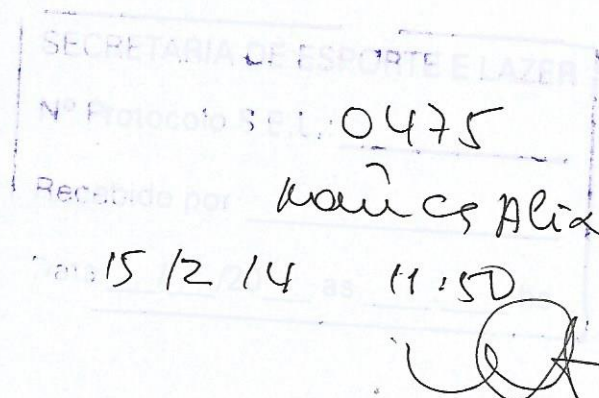 SECRETARIA DE ESPORTE E LAZER
Nº Protocolo S.E.L.: 0475
Recebido por
Data 15/2/14 as 11:50